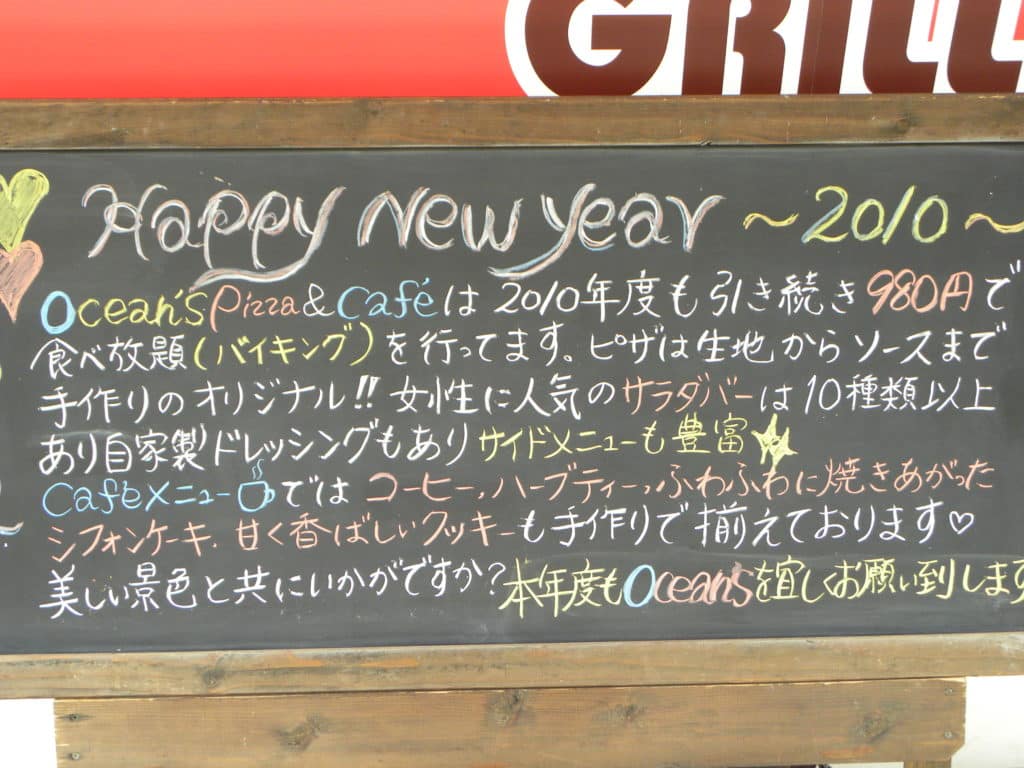 GRILL
Happy New Year ～2010～
Ocean's Pizza & Caféは 2010年度も引き続き 980円で
食べ放題(バイキング)を行ってます。ピザは生地からソースまで
手作りのオリジナル!! 女性に人気のサラダバーは10種類以上
あり自家製ドレッシングもありサイドメニューも豊富
Caféメニューでは コーヒー、ハーブティー、ふわふわに焼きあがった
シフォンケーキ、甘く香ばしいクッキーも手作りで揃えております♡
美しい景色と共にいかがですか?本年度もOcean'sを宜しくお願い到します